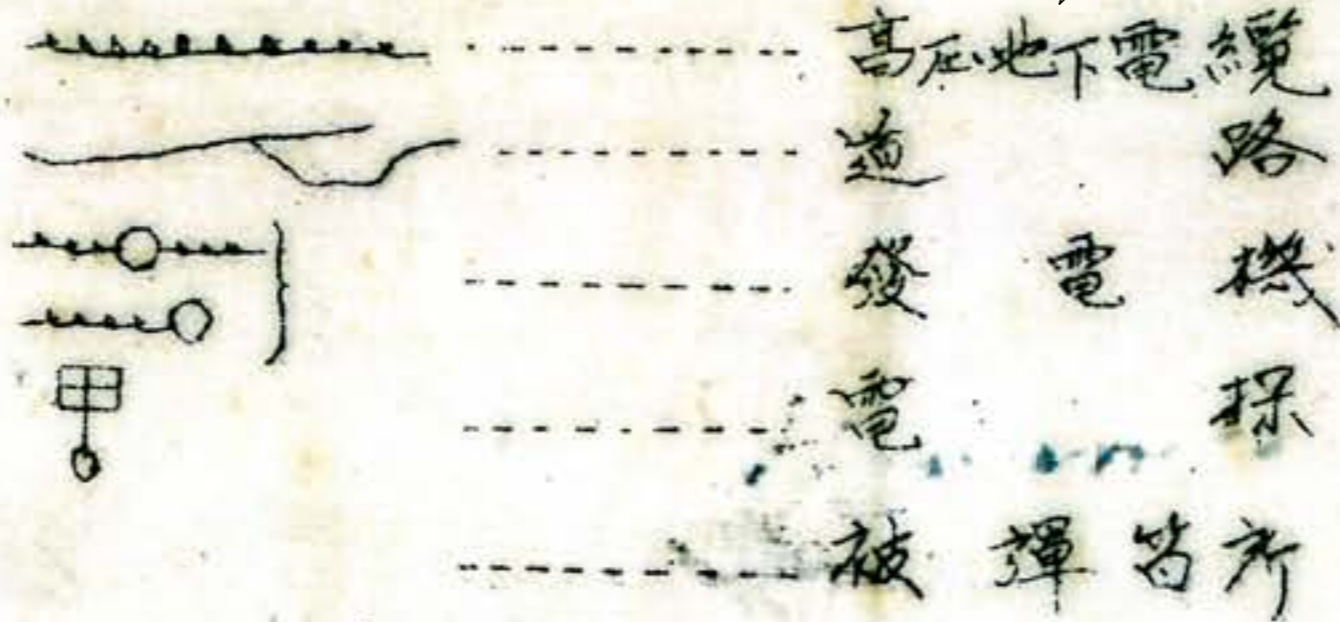 高压地下電纜
道路
發電機
電探
被彈箇所